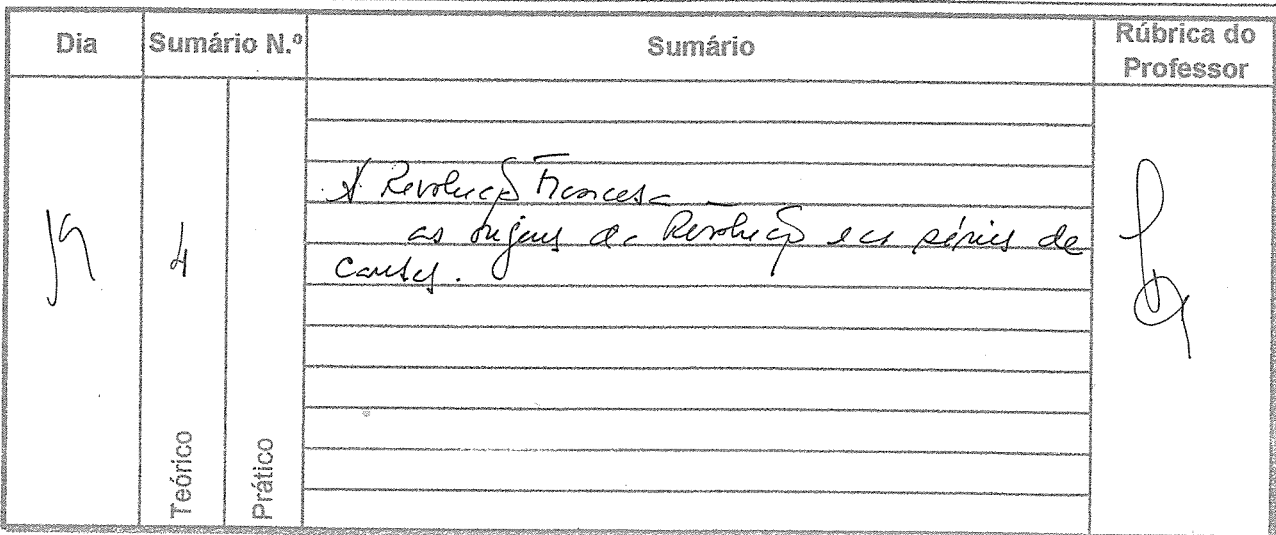 Dia Sumário N.º Sumário Rúbrica do Professor
A Revolução Francesa
as origens da Revolução e as séries de
causas.
4
Teórico
Prático